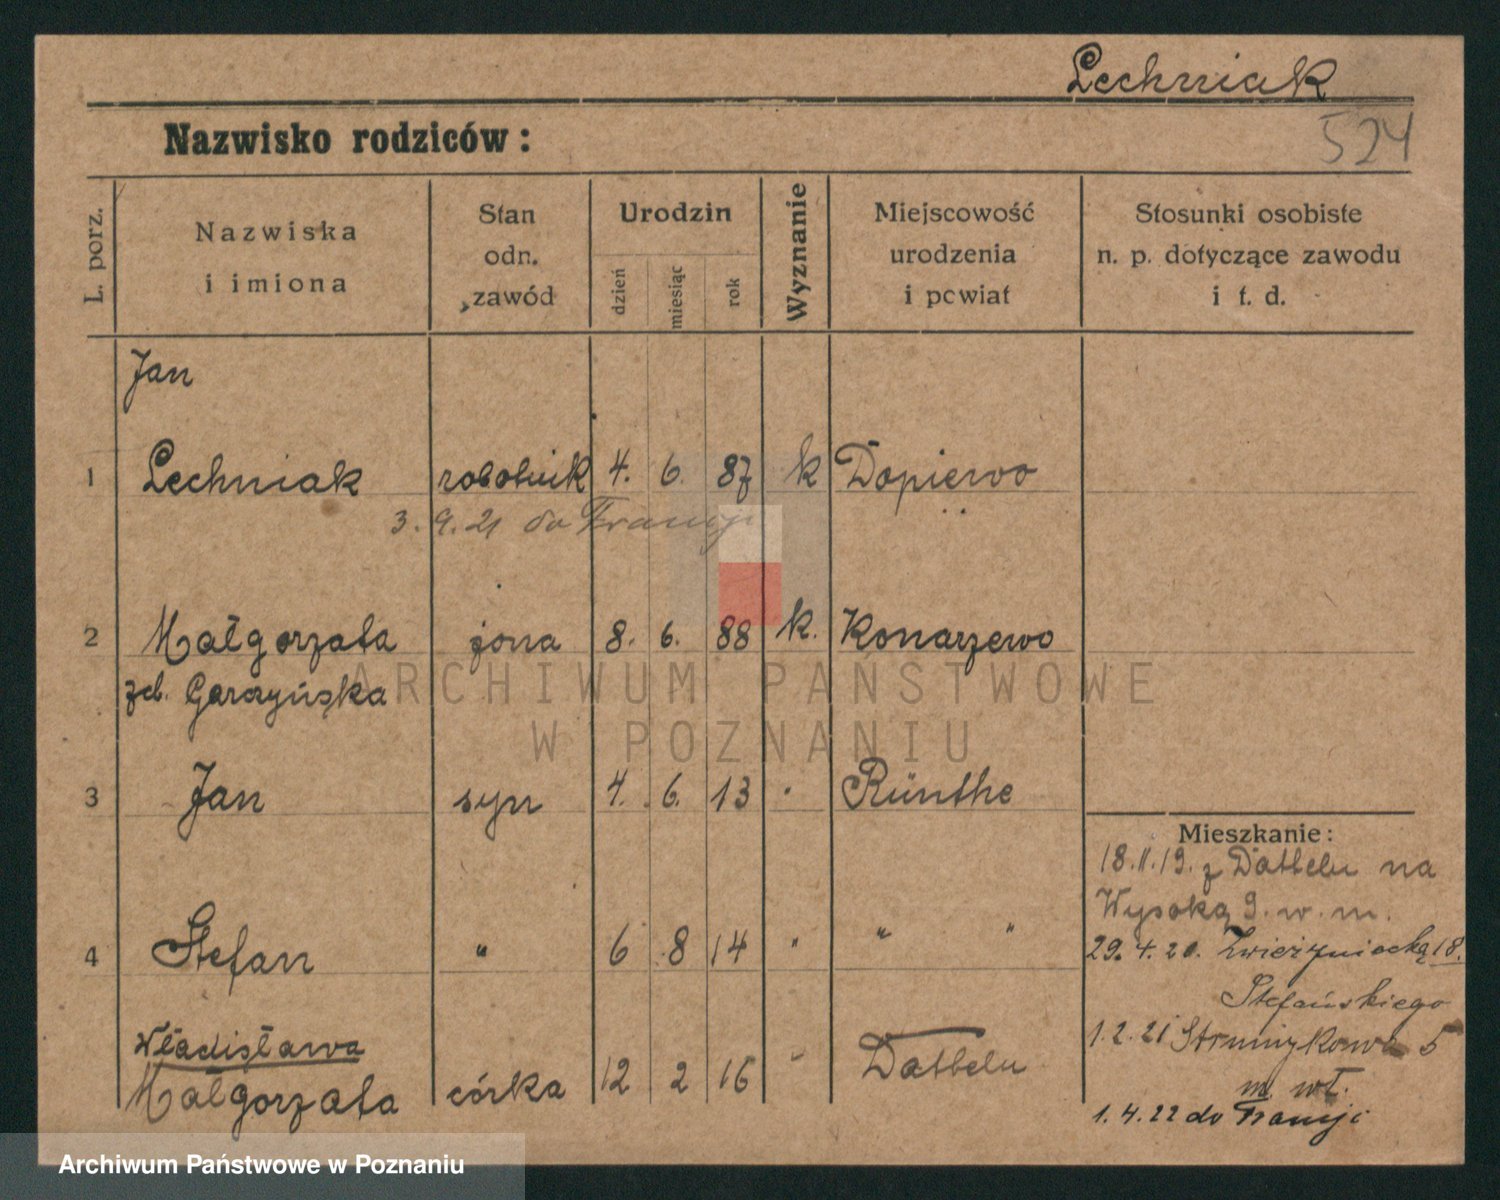 Lechniak
Nazwisko rodziców:
524
L. porz.
Nazwiska
i imiona
Stan
odn.
zawód
Urodzin
dzień
miesiąc
rok
Wyznanie
Miejscowość
urodzenia
i powiat
Stosunki osobiste
n. p. dotyczące zawodu
i t. d.
Jan
1 Lechniak robotnik 4. 6. 87 k Dopiewo
3.9.21 do Francji
2 Małgorzata żona 8. 6. 88 k. Konarzewo
zd. Garczyńska
ARCHIWUM PAŃSTWOWE
W POZNANIU
3 Jan syn 4. 6. 13 Rünthe
Mieszkanie:
18.11.19. z Datteln na
Wysoką 9. w. m.
4 Stefan " 6 8 14 " " "
29.4.20. Zwierzyniecką 18.
Stefańskiego
Władisława
1.2.21 Strumykowa 5
Małgorzata córka 12 2 16 " Datteln
m. wł.
1.4.22 do Francji
Archiwum Państwowe w Poznaniu